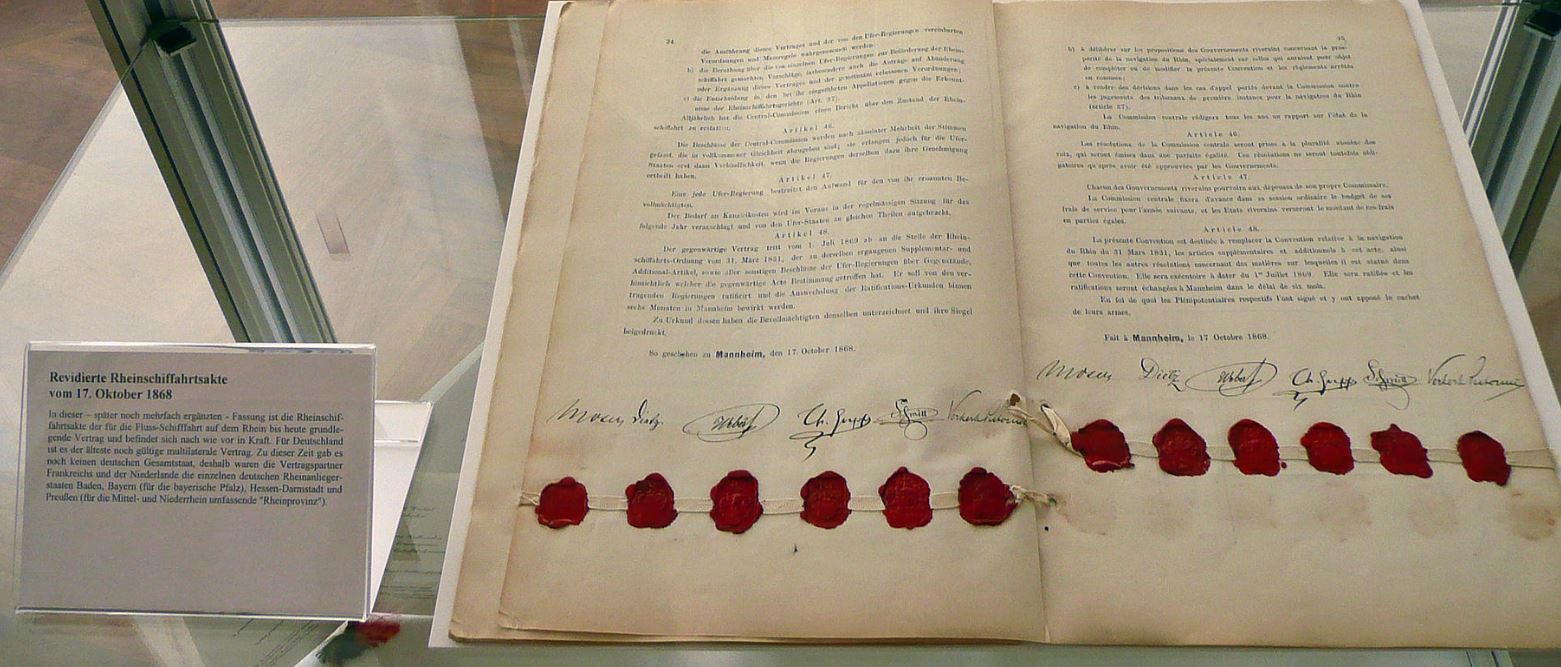 Revidierte Rheinschiffahrtsakte
vom 17. Oktober 1868
In dieser – später noch mehrfach ergänzten - Fassung ist die Rheinschif-
fahrtsakte der für die Fluss-Schifffahrt auf dem Rhein bis heute grundle-
gende Vertrag und befindet sich nach wie vor in Kraft. Für Deutschland
ist es der älteste noch gültige multilaterale Vertrag. Zu dieser Zeit gab es
noch keinen deutschen Gesamtstaat, deshalb waren die Vertragspartner
Frankreichs und der Niederlande die einzelnen deutschen Rheinanlieger-
staaten Baden, Bayern (für die bayerische Pfalz), Hessen-Darmstadt und
Preußen (für die Mittel- und Niederrhein umfassende "Rheinprovinz").
24
die Ausführung dieses Vertrages und der von den Ufer-Regierungen vereinbarten
Verordnungen und Massregeln wahrgenommen werden.
b) die Berathung über die von einzelnen Ufer-Regierungen zur Beförderung der Rhein-
schiffahrt gemachten Vorschläge, insbesondere auch die Anträge auf Abänderung
oder Ergänzung dieses Vertrages und der gemeinsam erlassenen Verordnungen;
c) die Entscheidung in den bei ihr eingeführten Appellationen gegen die Erkennt-
nisse der Rheinschiffahrtsgerichte (Art. 37).
Alljährlich hat die Central-Commission einen Bericht über den Zustand der Rhein-
schiffahrt zu erstatten.
Artikel 46.
Die Beschlüsse der Central-Commission werden nach absoluter Mehrheit der Stimmen
gefasst, die in vollkommener Gleichheit abzugeben sind; sie erlangen jedoch für die Ufer-
Staaten erst dann Verbindlichkeit, wenn die Regierungen derselben dazu ihre Genehmigung
ertheilt haben.
Artikel 47.
Eine jede Ufer-Regierung bestreitet den Aufwand für den von ihr ernannten Be-
vollmächtigten.
Der Bedarf an Kanzleikosten wird im Voraus in der regelmässigen Sitzung für das
folgende Jahr veranschlagt und von den Ufer-Staaten zu gleichen Theilen aufgebracht.
Artikel 48.
Der gegenwärtige Vertrag tritt vom 1. Juli 1869 ab an die Stelle der Rhein-
schiffahrts-Ordnung vom 31. März 1831, der zu derselben ergangenen Supplementar- und
Additional-Artikel, sowie aller sonstigen Beschlüsse der Ufer-Regierungen über Gegenstände,
hinsichtlich welcher die gegenwärtige Acte Bestimmung getroffen hat. Er soll von den ver-
tragenden Regierungen ratificirt und die Auswechslung der Ratifications-Urkunden binnen
sechs Monaten in Mannheim bewirkt werden.
Zu Urkund dessen haben die Bevollmächtigten denselben unterzeichnet und ihre Siegel
beigedruckt.
So geschehen zu Mannheim, den 17. October 1868.
Moser Dietz Weber Ch. Goepp Schmitt
b) à délibérer sur les propositions des Gouvernements riverains concernant la pros-
périté de la navigation du Rhin, spécialement sur celles qui auraient pour objet
de compléter ou de modifier la présente Convention et les règlements arrêtés
en commun;
c) à rendre des décisions dans les cas d'appel portés devant la Commission contre
les jugements des tribunaux de première instance pour la navigation du Rhin
(article 37).
La Commission centrale rédigera tous les ans un rapport sur l'état de la
navigation du Rhin.
Article 46.
Les résolutions de la Commission centrale seront prises à la pluralité absolue des
voix, qui seront émises dans une parfaite égalité. Ces résolutions ne seront toutefois obli-
gatoires qu'après avoir été approuvées par les Gouvernements.
Article 47.
Chacun des Gouvernements riverains pourvoira aux dépenses de son propre Commissaire.
La Commission centrale fixera d'avance dans sa session ordinaire le budget de ses
frais de service pour l'année suivante, et les Etats riverains verseront le montant de ces frais
en parties égales.
Article 48.
La présente Convention est destinée à remplacer la Convention relative à la navigation
du Rhin du 31 Mars 1831, les articles supplémentaires et additionnels à cet acte, ainsi
que toutes les autres résolutions concernant des matières sur lesquelles il est statué dans
cette Convention. Elle sera exécutoire à dater du 1er Juillet 1869. Elle sera ratifiée et les
ratifications seront échangées à Mannheim dans le délai de six mois.
En foi de quoi les Plénipotentiaires respectifs l'ont signé et y ont apposé le cachet
de leurs armes.
Fait à Mannheim, le 17 Octobre 1868.
Moser Dietz Weber Ch. Goepp Schmitt